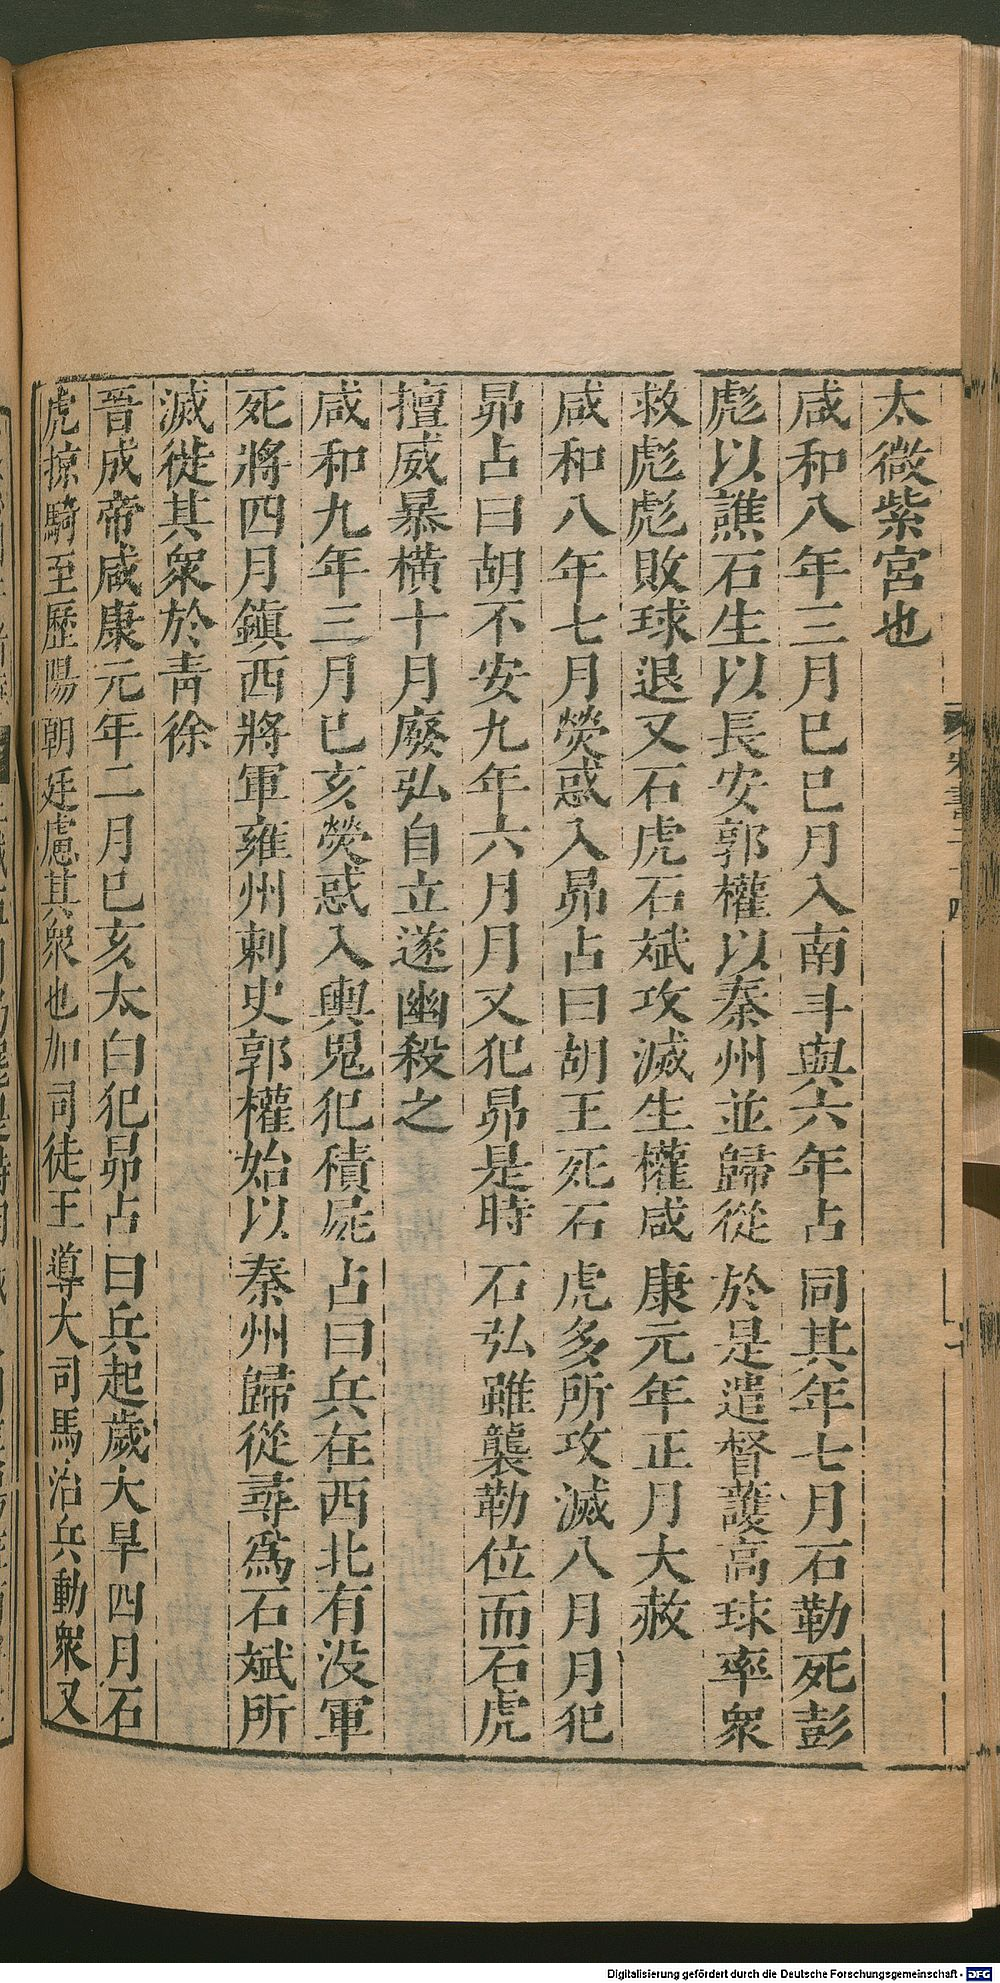 太微紫宮也
咸和八年三月巳巳月入南斗與六年占同其年七月石勒死彭
彪以譙石生以長安郭權以秦州並歸從於是遣督護高球率衆
救彪彪敗球退又石虎石斌攻滅生權咸康元年正月大赦
咸和八年七月熒惑入昴占曰胡王死石虎多所攻滅八月月犯
昴占曰胡不安九年六月月又犯昴是時石弘雖襲勒位而石虎
擅威暴橫十月廢弘自立遂幽殺之
咸和九年三月巳亥熒惑入輿鬼犯積屍占曰兵在西北有没軍
死將四月鎮西將軍雍州刺史郭權始以秦州歸從尋爲石斌所
滅徙其衆於青徐
晉成帝咸康元年二月巳亥太白犯昴占曰兵起歲大旱四月石
虎掠騎至歷陽朝廷慮其衆也加司徒王導大司馬治兵動衆又
Digitalisierung gefördert durch die Deutsche Forschungsgemeinschaft - DFG